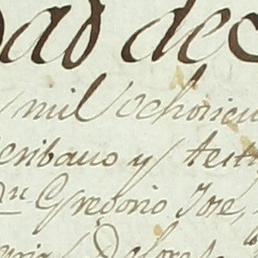 dad de
mil ochocien
scribano y test
Dn Gregorio José,
Dolores